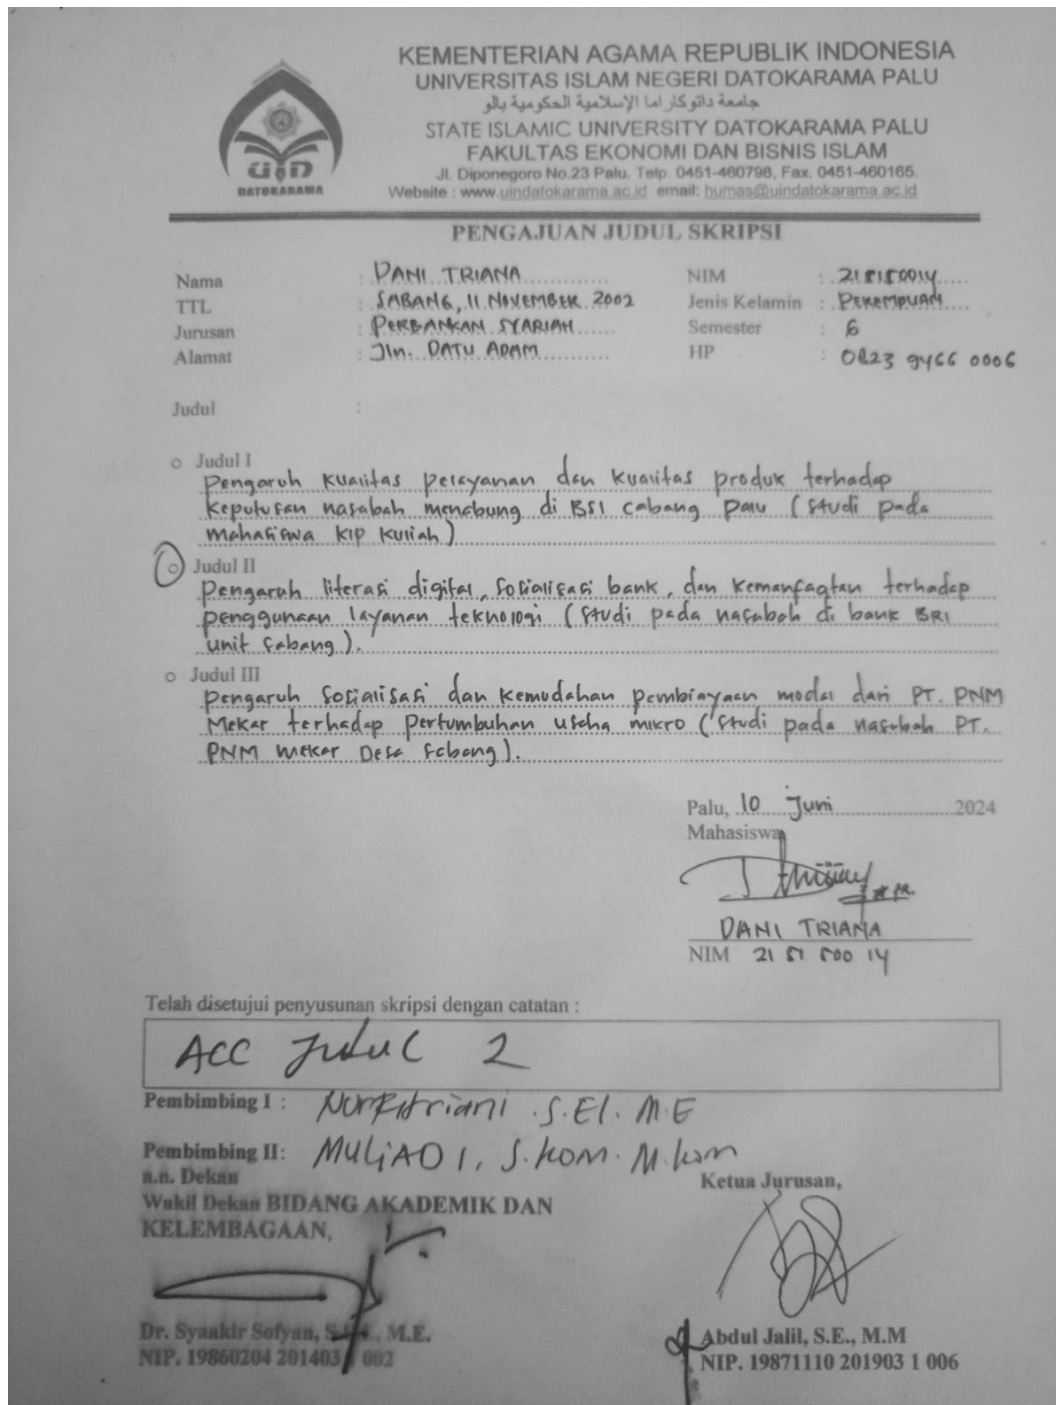 KEMENTERIAN AGAMA REPUBLIK INDONESIA
UNIVERSITAS ISLAM NEGERI DATOKARAMA PALU
جامعة داتوكاراما الإسلامية الحكومية بالو
STATE ISLAMIC UNIVERSITY DATOKARAMA PALU
FAKULTAS EKONOMI DAN BISNIS ISLAM
Jl. Diponegoro No.23 Palu. Telp. 0451-460798, Fax. 0451-460165.
Website : www.uindatokarama.ac.id email: humas@uindatokarama.ac.id
UIN
DATOKARAMA
PENGAJUAN JUDUL SKRIPSI
Nama : DANI TRIANA NIM : 215150014
TTL : SABANG, 11 NOVEMBER 2002 Jenis Kelamin : PEREMPUAN
Jurusan : PERBANKAN SYARIAH Semester : 6
Alamat : Jln. DATU ADAM HP : 0823 9466 0006
Judul :
Judul I
Pengaruh kualitas pelayanan dan kualitas produk terhadap
keputusan nasabah menabung di BSI cabang palu (studi pada
mahasiswa KIP Kuliah)
Judul II
Pengaruh literasi digital, sosialisasi bank, dan kemanfaatan terhadap
penggunaan layanan teknologi (studi pada nasabah di bank BRI
unit sabang).
Judul III
pengaruh sosialisasi dan kemudahan pembiayaan modal dari PT. PNM
Mekar terhadap pertumbuhan usaha mikro (studi pada nasabah PT.
PNM mekar Desa sabang).
Palu, 10 Juni 2024
Mahasiswa
DANI TRIANA
NIM 21 51 500 14
Telah disetujui penyusunan skripsi dengan catatan :
ACC Judul 2
Pembimbing I : Nurfitriani .S.EI. M.E
Pembimbing II: MULIADI, S.Kom. M.Kom
a.n. Dekan
Wakil Dekan BIDANG AKADEMIK DAN
KELEMBAGAAN,
Ketua Jurusan,
Dr. Syaakir Sofyan, M.E.
NIP. 19860204 201403 002
Abdul Jalil, S.E., M.M
NIP. 19871110 201903 1 006